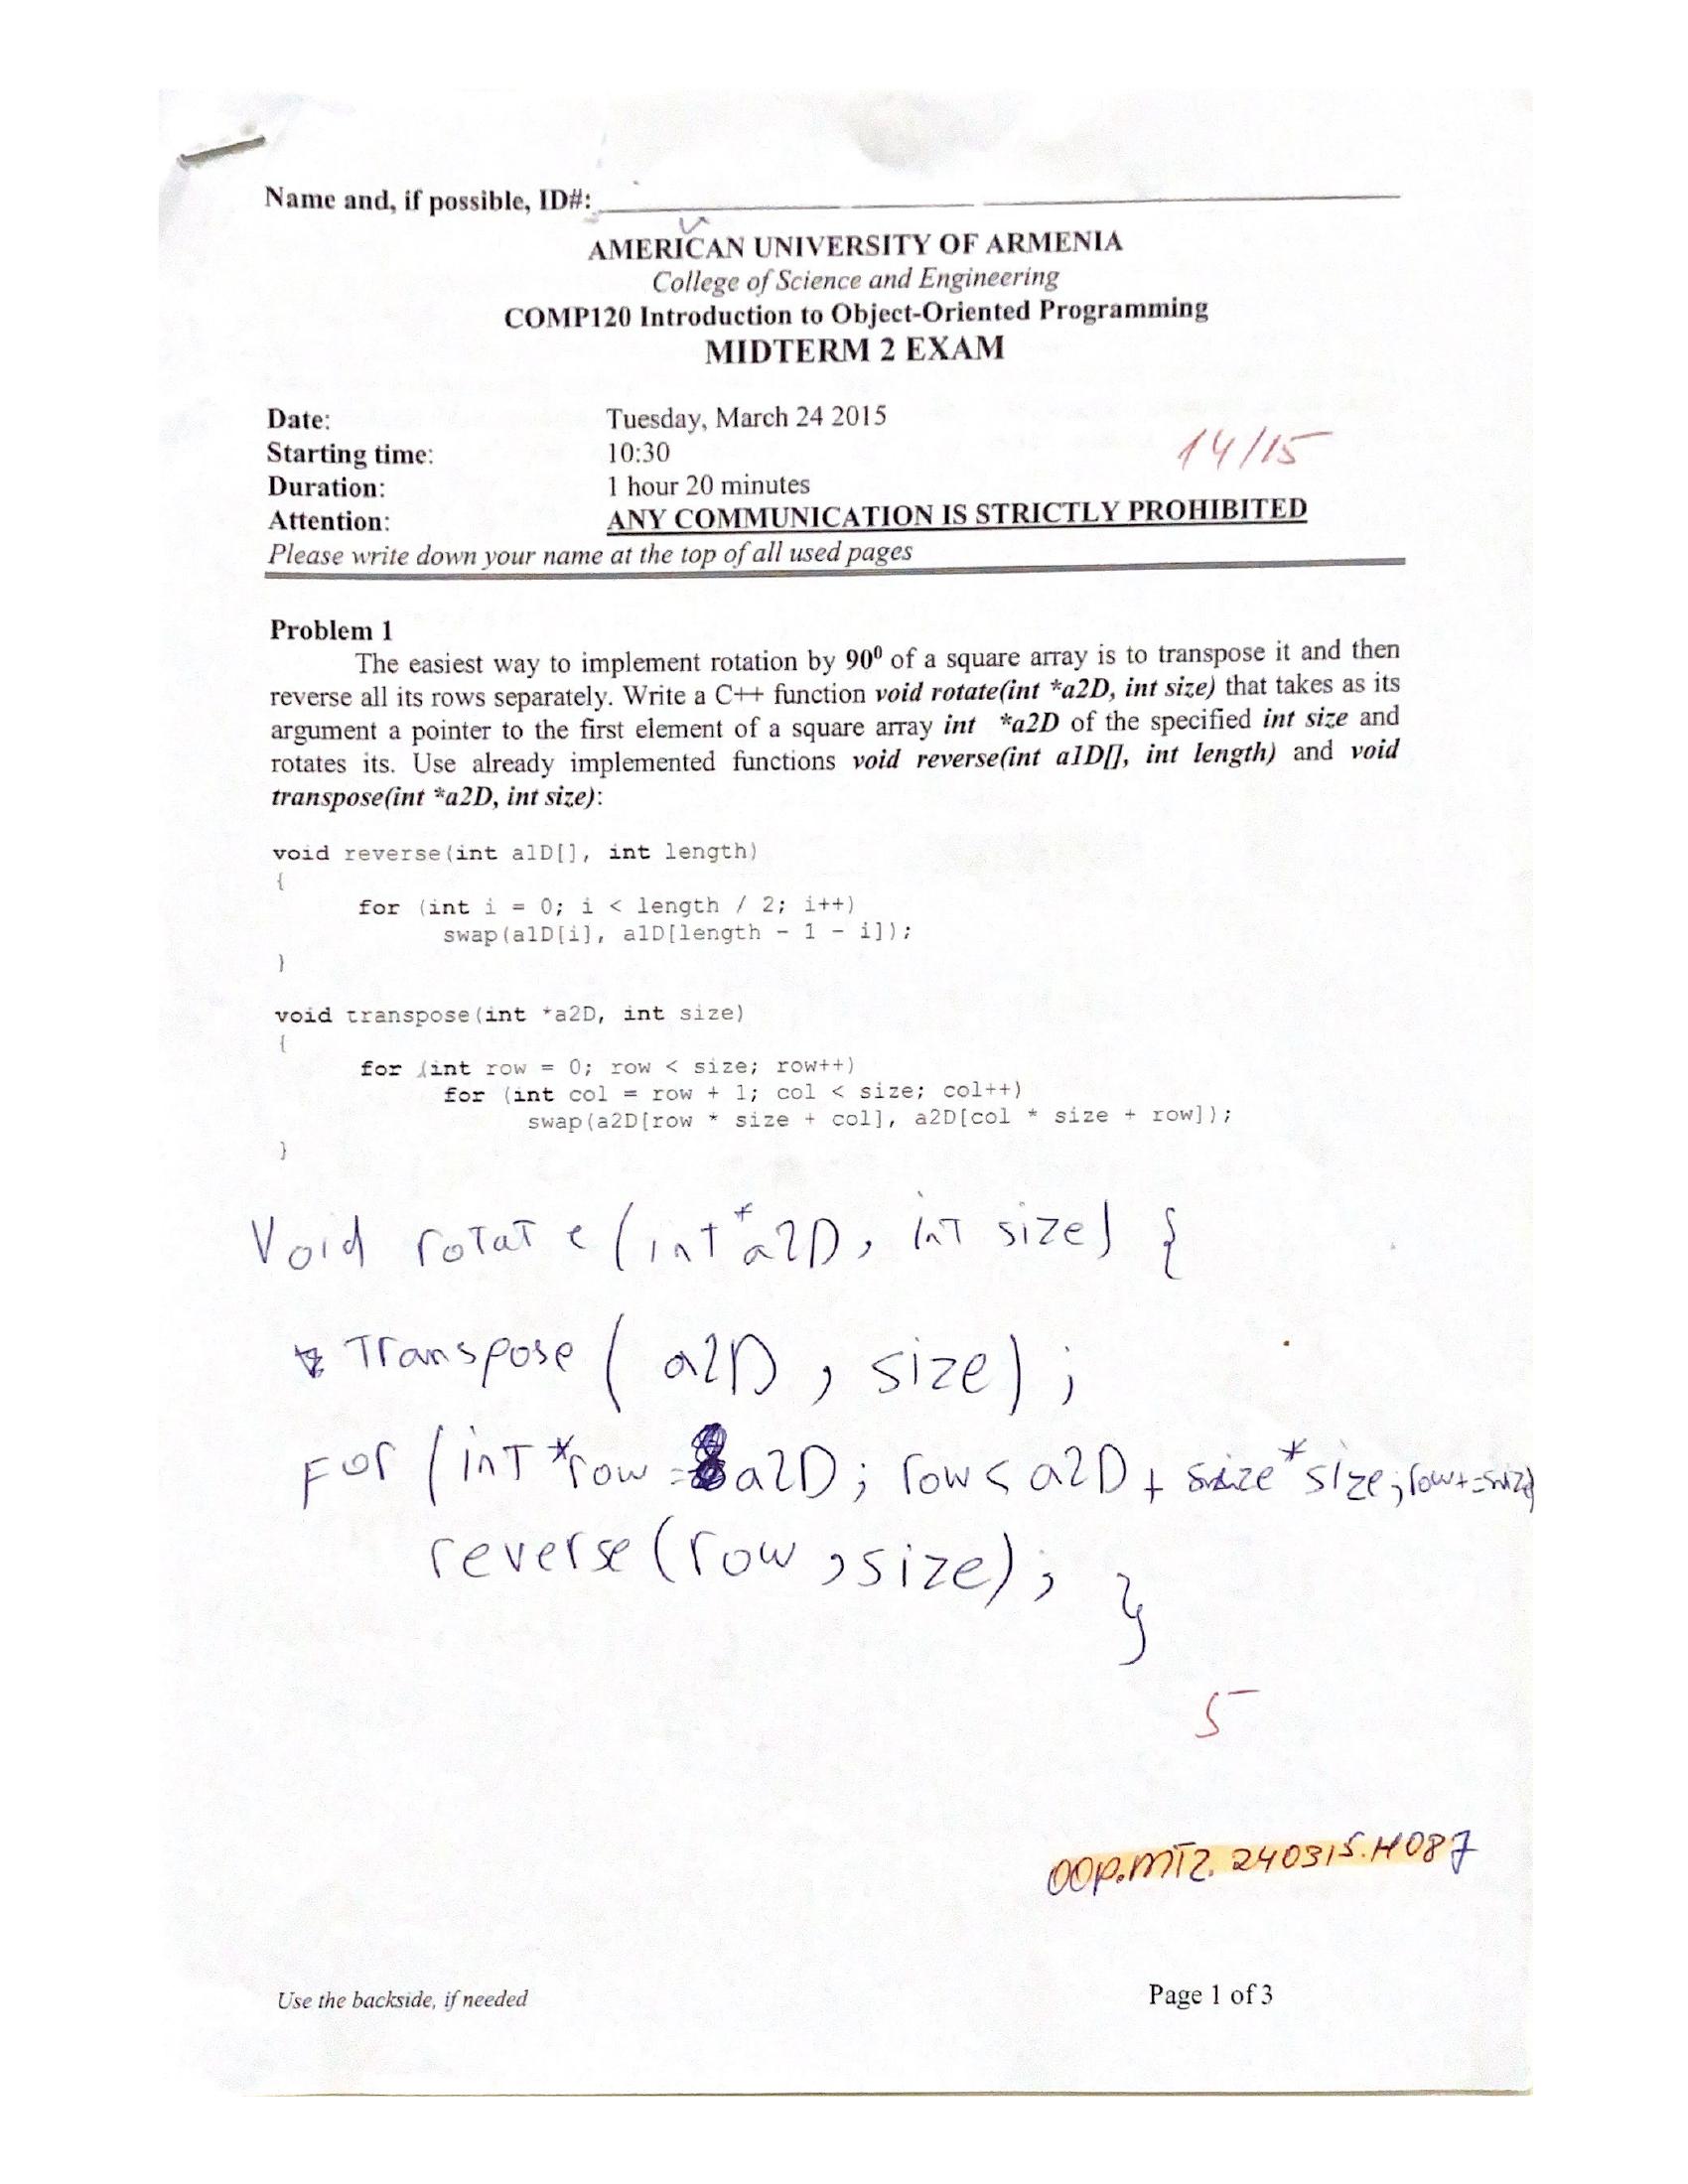 Name and, if possible, ID#:
AMERICAN UNIVERSITY OF ARMENIA
College of Science and Engineering
COMP120 Introduction to Object-Oriented Programming
MIDTERM 2 EXAM
Date: Tuesday, March 24 2015
14/15
Starting time: 10:30
Duration: 1 hour 20 minutes
Attention: ANY COMMUNICATION IS STRICTLY PROHIBITED
Please write down your name at the top of all used pages
Problem 1
The easiest way to implement rotation by 90⁰ of a square array is to transpose it and then
reverse all its rows separately. Write a C++ function void rotate(int *a2D, int size) that takes as its
argument a pointer to the first element of a square array int *a2D of the specified int size and
rotates its. Use already implemented functions void reverse(int a1D[], int length) and void
transpose(int *a2D, int size):
void reverse(int a1D[], int length)
{
for (int i = 0; i < length / 2; i++)
swap(a1D[i], a1D[length - 1 - i]);
}
void transpose(int *a2D, int size)
{
for (int row = 0; row < size; row++)
for (int col = row + 1; col < size; col++)
swap(a2D[row * size + col], a2D[col * size + row]);
}
Void rotate (int *a2D, int size) {
Transpose ( a2D , size ) ;
For ( int *row = a2D ; row < a2D + size * size ; row += size)
reverse (row , size) ; }
5
OOP.MT2.240315.H087
Use the backside, if needed
Page 1 of 3